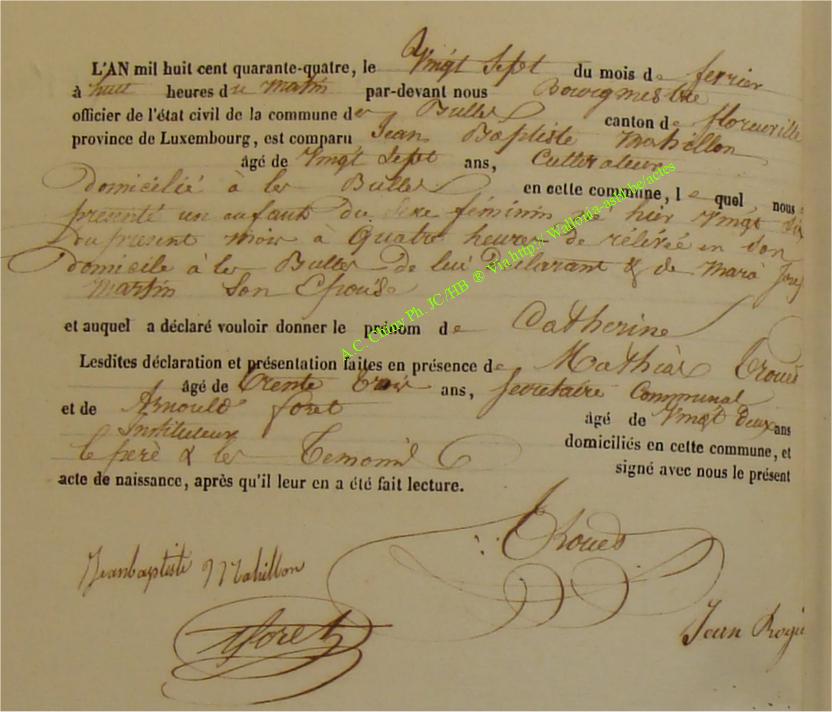 L'AN mil huit cent quarante-quatre, le Vingt Sept du mois de fevrier
à huit heures du matin par-devant nous Bourgmestre
officier de l'état civil de la commune de Bulles canton de florenville
province de Luxembourg, est comparu Jean Baptiste Mahillon
âgé de Vingt Sept ans, Cultivateur
Domicilié à les Bulles en cette commune, lequel nous a
présenté un enfant du Sexe féminin né hier Vingt Six
du present mois à Quatre heures de rélévée en son
domicile à les Bulles de lui Déclarant & de Marie
Martin Son Epouse
et auquel a déclaré vouloir donner le prénom de Catherine
Lesdites déclaration et présentation faites en présence de Mathias Troues
âgé de Trente Trois ans, Secretaire Communal
et de Arnould foret âgé de Vingt Deux ans
Instituteur domiciliés en cette commune, et
le père & les Temoins signé avec nous le présent
acte de naissance, après qu'il leur en a été fait lecture.
A.C. Chiny Ph. JC/HB ® Via http:// Wallonia-asbl.be/actes
Jeanbaptiste Mahillon
Troues
foret
Jean